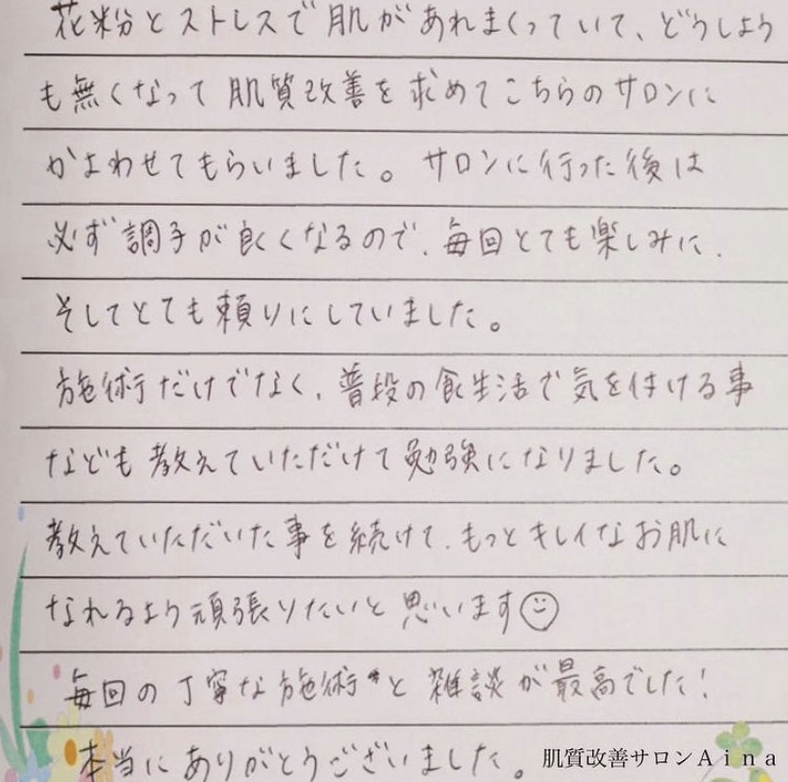 花粉とストレスで肌があれまくっていて、どうしよう
も無くなって肌質改善を求めてこちらのサロンに
かよわせてもらいました。サロンに行った後は
必ず調子が良くなるので、毎回とても楽しみに、
そしてとても頼りにしていました。
施術だけでなく、普段の食生活で気を付ける事
なども教えていただけて勉強になりました。
教えていただいた事を続けて、もっとキレイなお肌に
なれるよう頑張りたいと思います☺
毎回の丁寧な施術と雑談が最高でした!
本当にありがとうございました。
肌質改善サロンAina